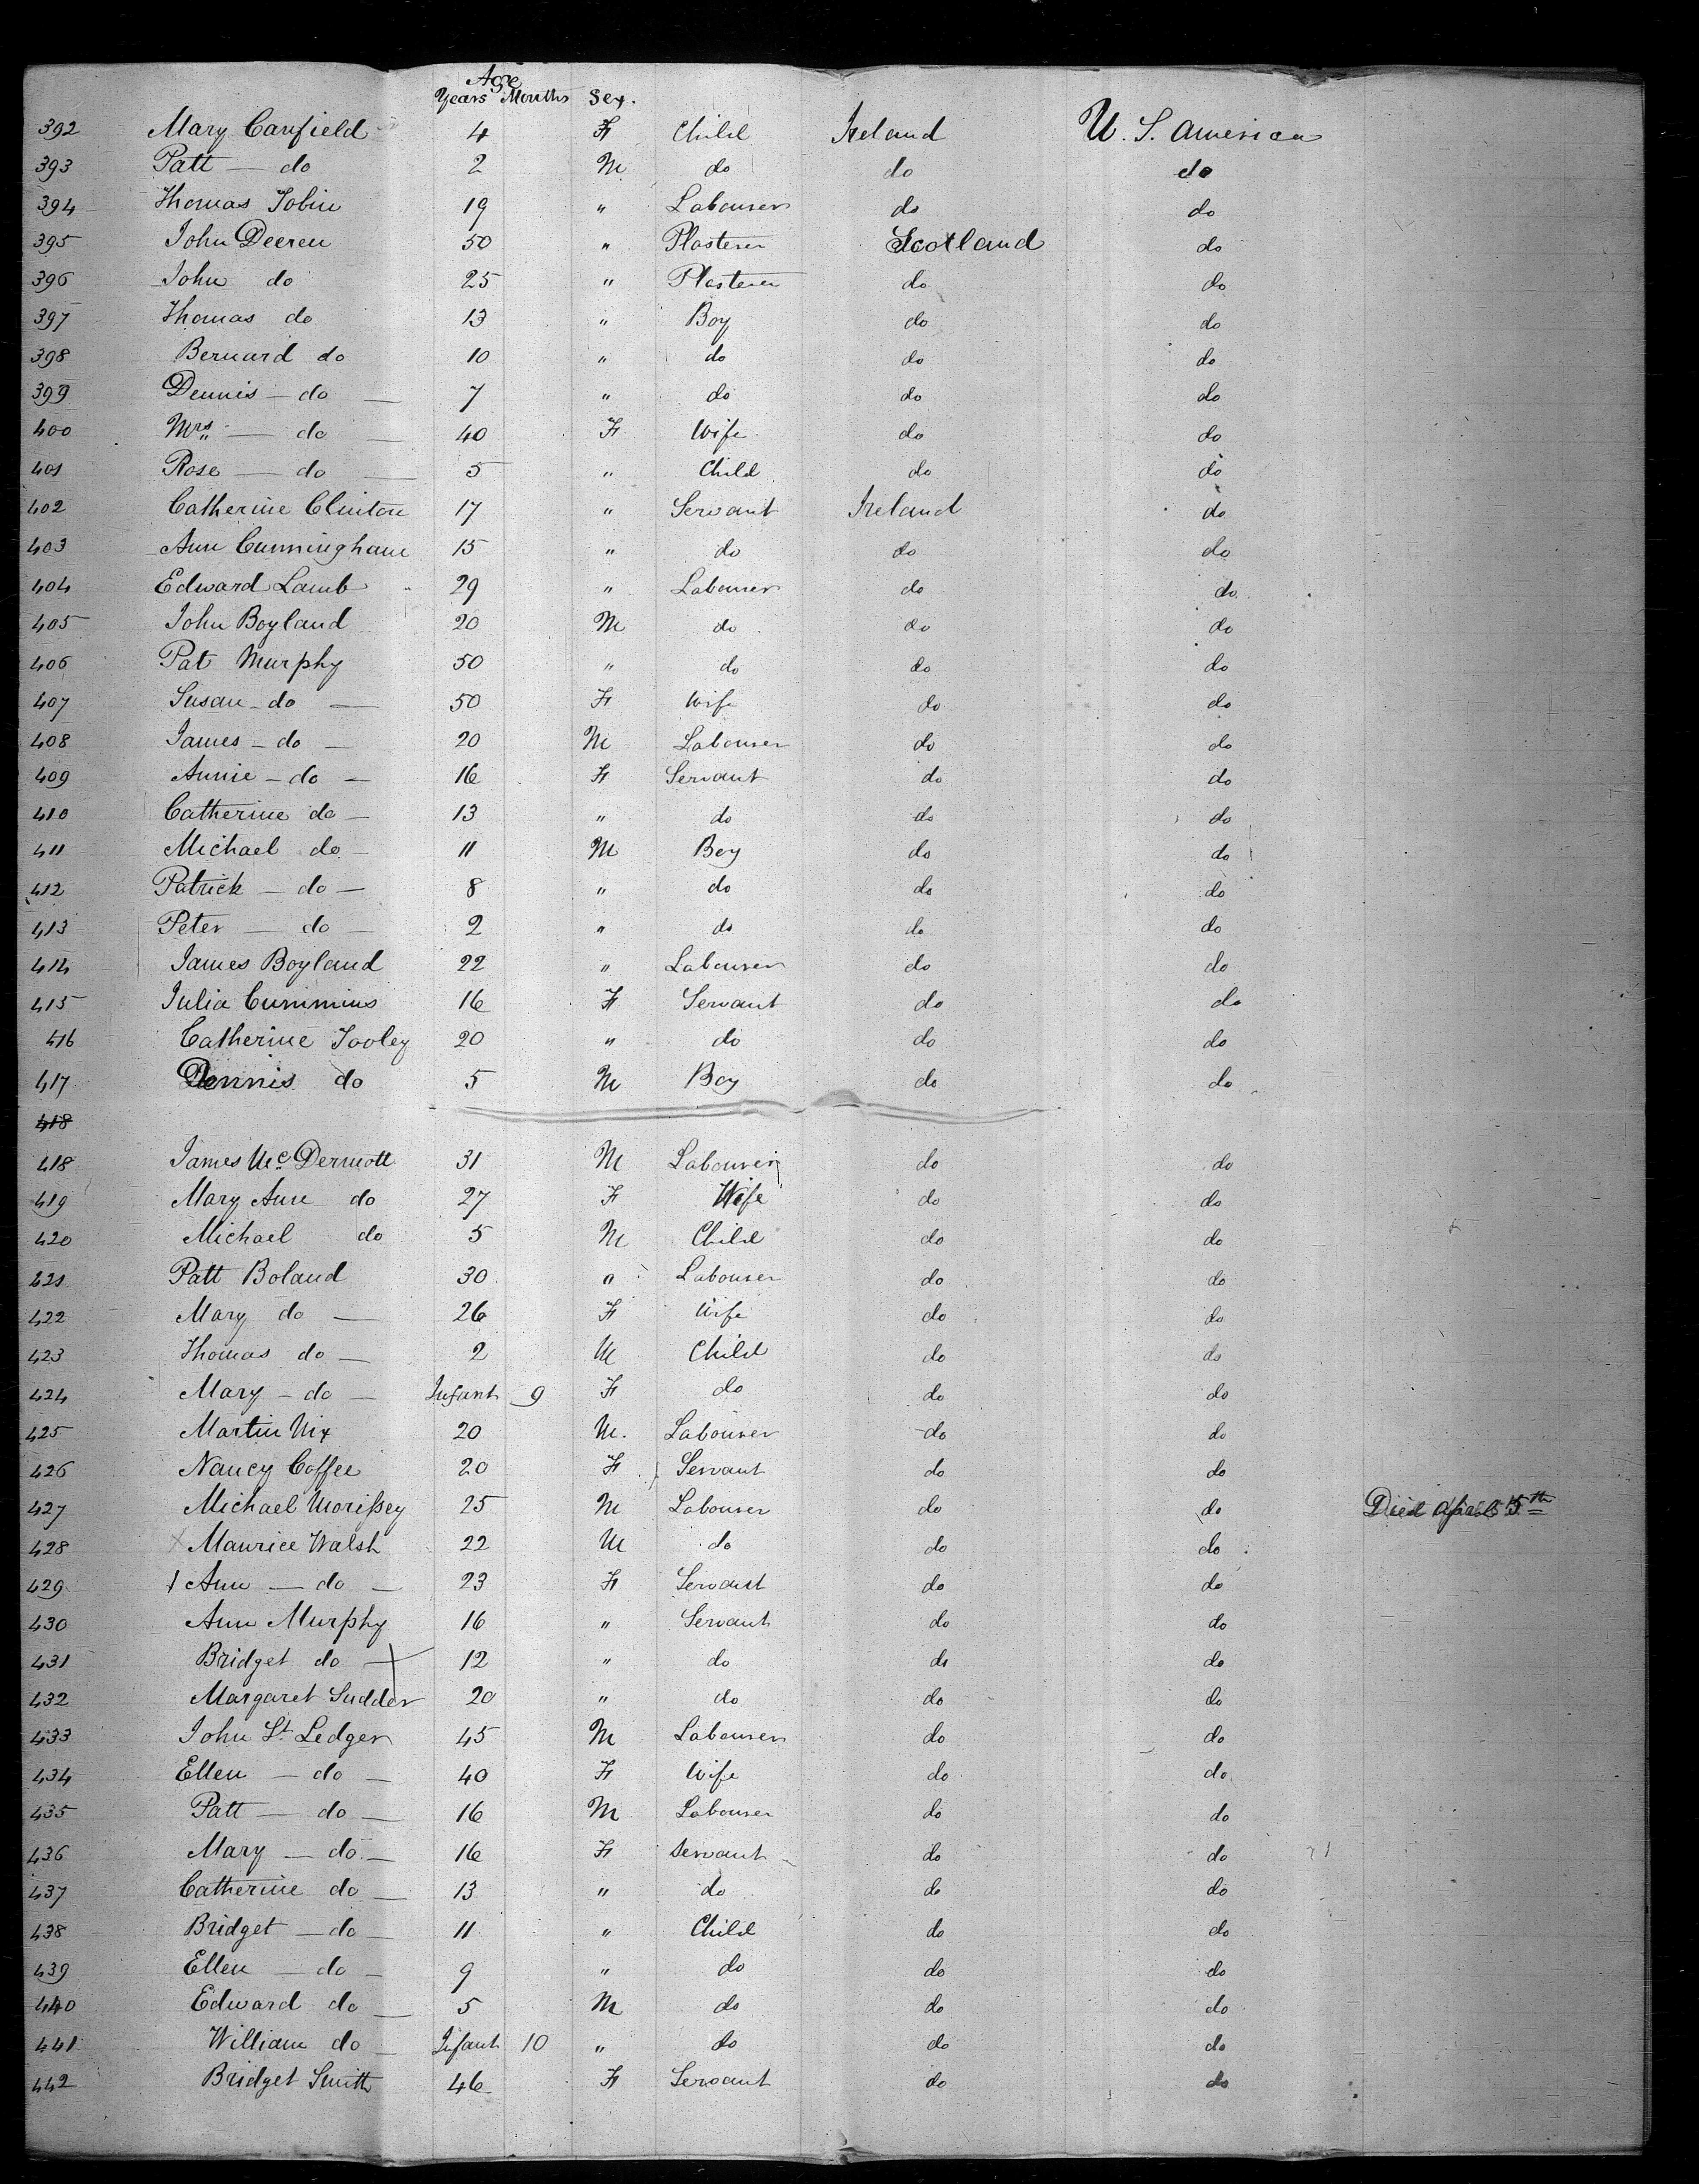 Age
Years Months Sex.
392 Mary Canfield 4 F Child Ireland U. S. America
393 Patt — do 2 M do do do
394 Thomas Tobin 19 " Labourer do do
395 John Deeren 50 " Plasterer Scotland do
396 John do 25 " Plasterer do do
397 Thomas do 13 " Boy do do
398 Bernard do 10 " do do do
399 Dennis — do — 7 " do do do
400 Mrs — do — 40 F Wife do do
401 Rose — do — 5 " Child do do
402 Catherine Clinton 17 " Servant Ireland do
403 Ann Cunningham 15 " do do do
404 Edward Lamb 29 " Labourer do do
405 John Boyland 20 M do do do
406 Pat Murphy 50 " do do do
407 Susan - do — 50 F Wife do do
408 James - do — 20 M Labourer do do
409 Annie - do — 16 F Servant do do
410 Catherine do — 13 " do do do
411 Michael do — 11 M Boy do do
412 Patrick — do — 8 " do do do
413 Peter — do — 2 " do do do
414 James Boyland 22 " Labourer do do
415 Julia Cummins 16 F Servant do do
416 Catherine Tooley 20 " do do do
417 Dennis do 5 M Boy do do
418
418 James McDermott 31 M Labourer do do
419 Mary Ann do 27 F Wife do do
420 Michael do 5 M Child do do
421 Patt Boland 30 " Labourer do do
422 Mary do — 26 F Wife do do
423 Thomas do — 2 M Child do do
424 Mary — do — Infant 9 F do do do
425 Martin Nix 20 M. Labourer do do
426 Nancy Coffee 20 F Servant do do
427 Michael Morissey 25 M Labourer do do Died April 5th
428 x Maurice Walsh 22 M do do do
429 x Ann — do — 23 F Servant do do
430 Ann Murphy 16 " Servant do do
431 Bridget do — 12 " do do do
432 Margaret Sudder 20 " do do do
433 John St Ledger 45 M Labourer do do
434 Ellen — do — 40 F Wife do do
435 Patt — do — 16 M Labourer do do
436 Mary — do — 16 F Servant do do
437 Catherine do — 13 " do do do
438 Bridget — do — 11 " Child do do
439 Ellen — do — 9 " do do do
440 Edward do — 5 M do do do
441 William do — Infant 10 " do do do
442 Bridget Smith 46 F Servant do do